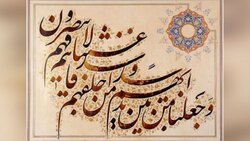 وجعلنا من بين ايديهم سدا ومن خلفهم سدا
فاغشيناهم فهم لا يبصرون